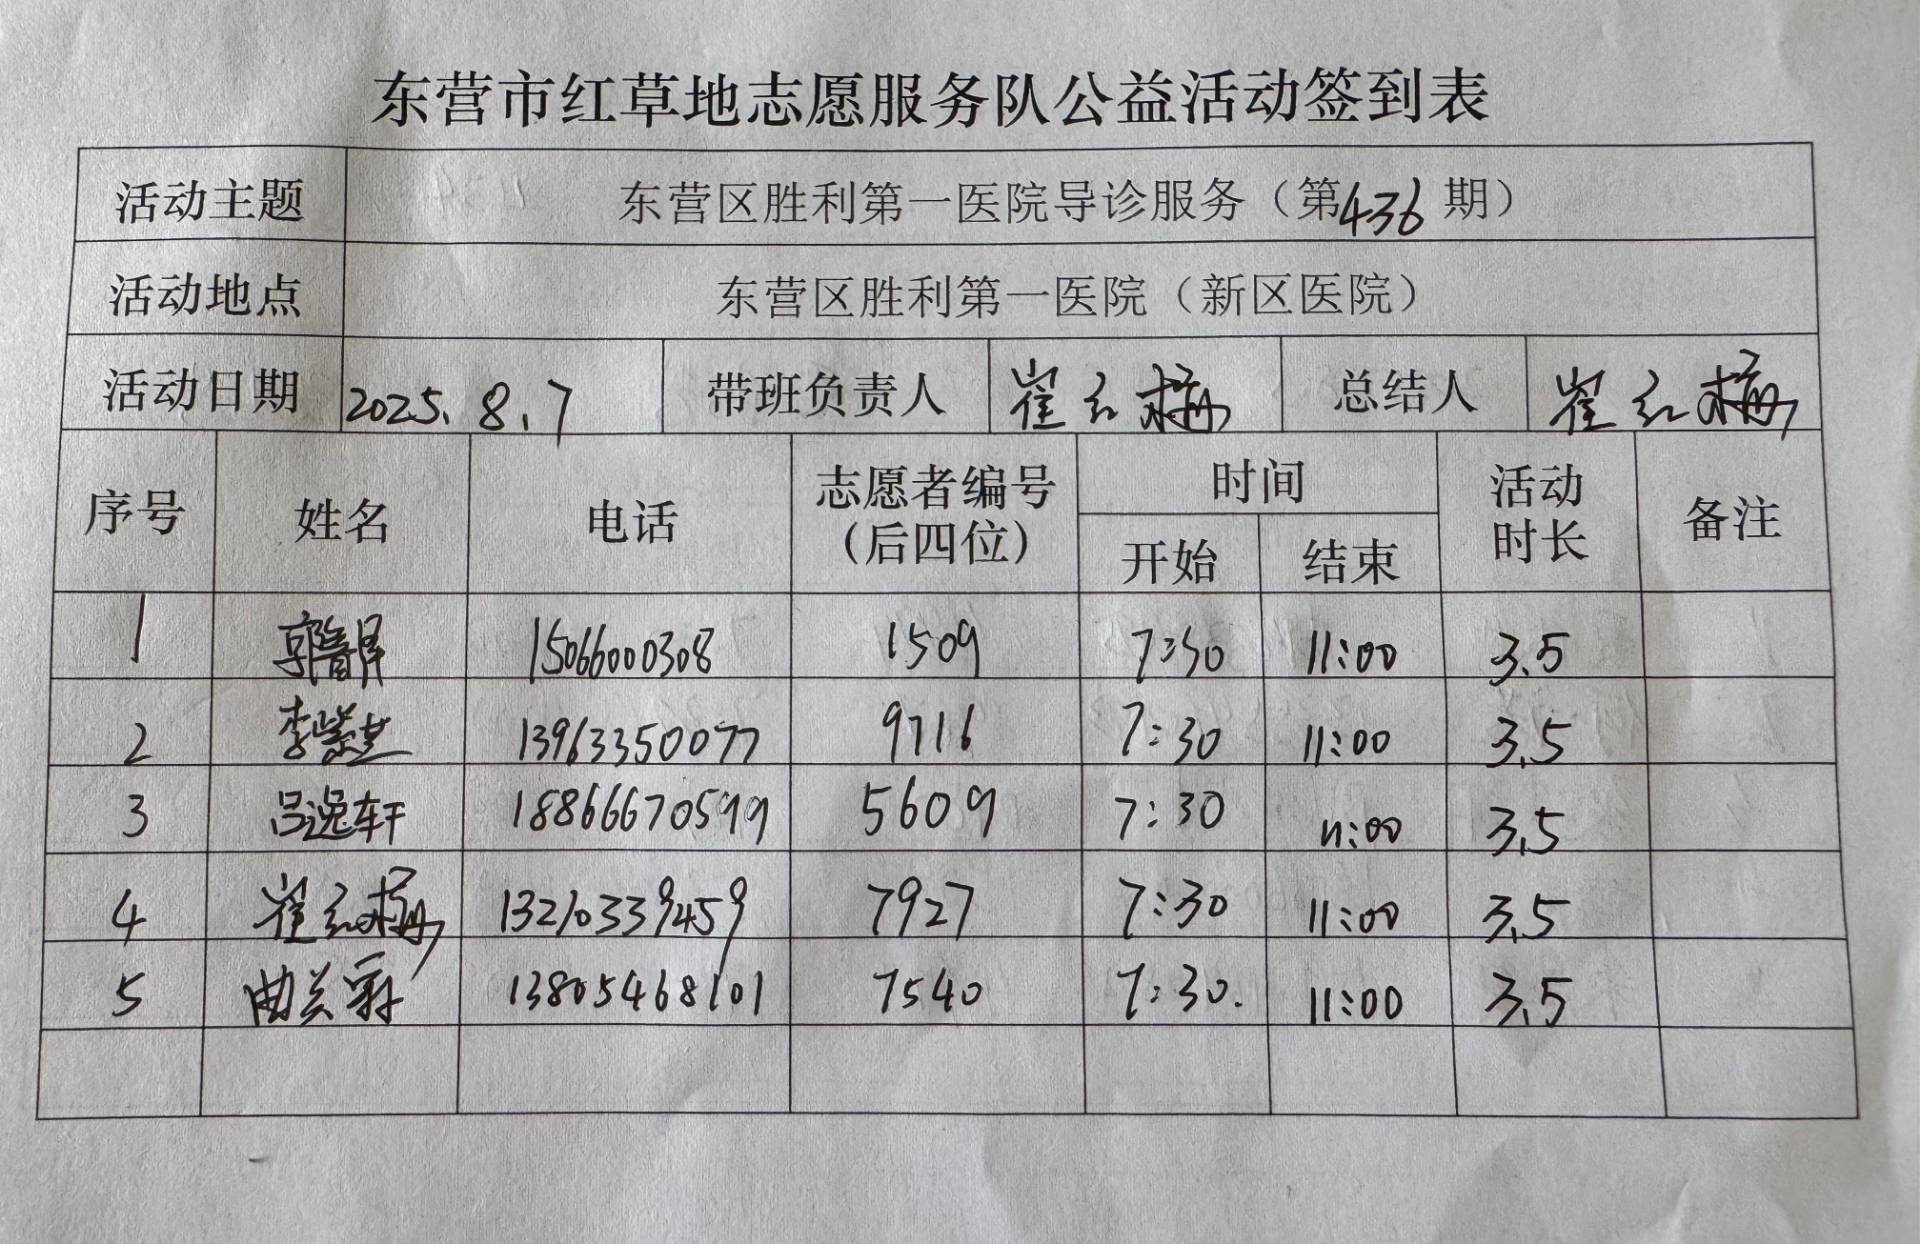 东营市红草地志愿服务队公益活动签到表
活动主题 东营区胜利第一医院导诊服务（第436期）
活动地点 东营区胜利第一医院（新区医院）
活动日期 2025.8.7 带班负责人 崔红梅 总结人 崔红梅
序号 姓名 电话 志愿者编号（后四位） 时间 开始 结束 活动时长 备注
1 郭 15066000308 1509 7:30 11:00 3.5
2 李紫芝 13963350077 9716 7:30 11:00 3.5
3 吕逸轩 18866670599 5609 7:30 11:00 3.5
4 崔红梅 13210339459 7927 7:30 11:00 3.5
5 曲关 13805468101 7540 7:30. 11:00 3.5